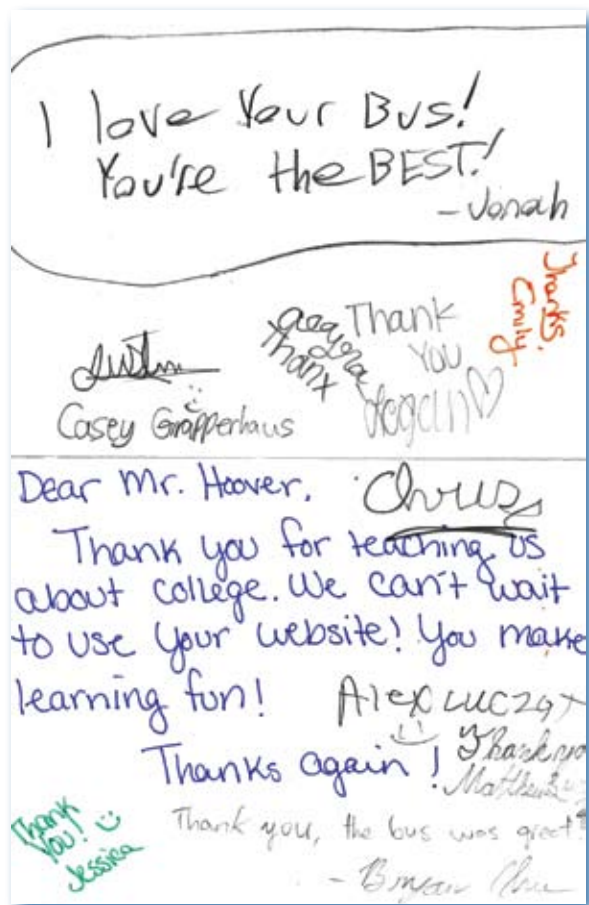 I love Your Bus!
You're the BEST!
- Jonah
Thanks
Emily
Thanx
Thank
You
Logan
Justin
Casey Grapperhaus
Dear Mr. Hoover,
Chris
Thank you for teaching us
about college. We can't wait
to use your website! You make
learning fun!
Alex
Thanks again!
Thank you
Matthew
Thank
You!
Jessica
Thank you, the bus was great!
- Bryan